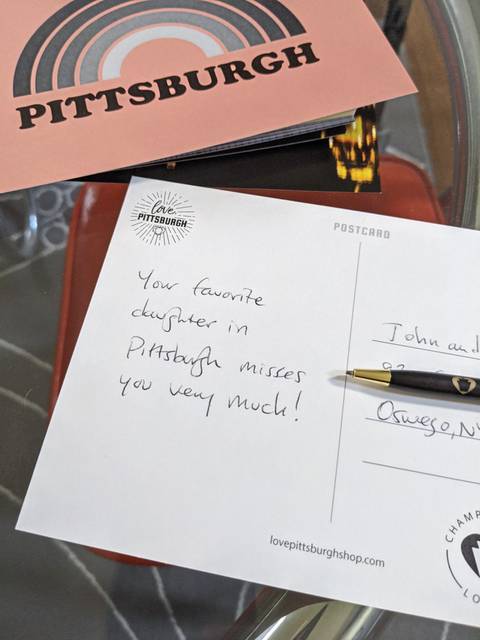 PITTSBURGH
love
PITTSBURGH
POSTCARD
Your favorite
daughter in
Pittsburgh misses
you very much!
John and
Oswego, NY
lovepittsburghshop.com
CHAMP
LO